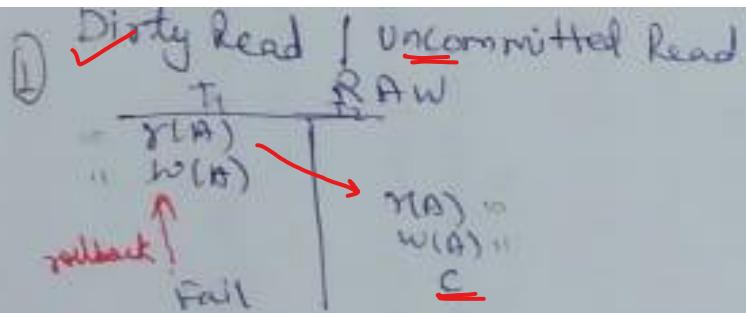 ① Dirty Read / Uncommitted Read
RAW
T1 T2
r(A)
" W(A)
r(A) "
W(A) "
rollback
C
Fail